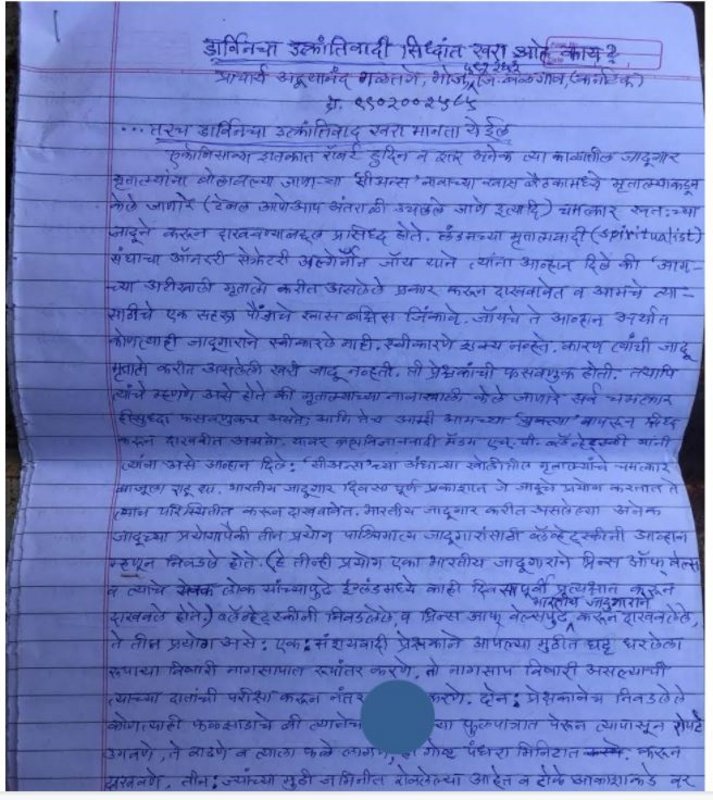 डार्विनचा उत्क्रांतिवादी सिध्दांत खरा आहे काय?
प्राचार्य अद्वयानंद गळतगे, भोज, जि. बेळगांव, (कर्नाटक)
...तरच डार्विनचा उत्क्रांतिवाद खरा मानता येईल
एकोणिसाव्या शतकात रॉबर्ट हुदिन व इतर अनेक त्या काळातील जादूगार
मृतात्म्यांना बोलावल्या जाणाऱ्या 'सीअन्स' नावाच्या खास बैठकामध्ये मृतात्म्याकडून
केले जाणारे (टेबल आपोआप अंतराळी उचलले जाणे इत्यादि) चमत्कार स्वतःच्या
जादूने करून दाखवण्याबद्दल प्रसिध्द होते. लंडनच्या मृतात्मवादी (spiritualist)
संघाचा ऑनररी सेक्रेटरी अल्गेर्नॉन जॉय याने त्यांना आव्हान दिले की 'आम-
च्या अटीखाली मृतात्मे करीत असलेले प्रकार करून दाखवावेत व आमचे त्या-
साठीचे एक सहस्र पौंडाचे खास बक्षिस जिंकावे. जॉयचे ते आव्हान अर्थात
कोणत्याही जादूगाराने स्वीकारले नाही. स्वीकारणे शक्य नव्हते. कारण त्यांची जादू
मृतात्मे करीत असलेली खरी जादू नव्हती. ती प्रेक्षकांची फसवणूक होती. तथापि
त्यांचे म्हणणे असे होते की मृतात्म्याच्या नावाखाली केले जाणारे सर्व चमत्कार
हीसुध्दा फसवणुकच असते आणि तेच आम्ही आमच्या 'युक्त्या' वापरून सिध्द
करून दाखवीत असतो. यावर ब्रह्मविद्यावादी मॅडम एच. पी. ब्लॅव्हेट्स्की यांनी
त्यांना असे आव्हान दिले: 'सीअन्स'च्या अंधाऱ्या खोलीतील मृतात्म्यांचे चमत्कार
बाजूला राहू द्या. भारतीय जादूगार दिवसा पूर्ण प्रकाशात जे जादूचे प्रयोग करतात ते
त्याच परिस्थितीत करून दाखवावेत. भारतीय जादूगार करीत असलेल्या अनेक
जादूच्या प्रयोगापैकी तीन प्रयोग पाश्चिमात्य जादूगारांसाठी ब्लॅव्हेट्स्कीनी आव्हान
म्हणून निवडले होते. (हे तीन्ही प्रयोग एका भारतीय जादूगाराने प्रिन्स ऑफ वेल्स
व त्याचे सेवक लोक यांच्यापुढे इंग्लंडमध्ये काही दिवसापूर्वी प्रत्यक्षात करून
दाखवले होते.) ब्लॅव्हेट्स्कीनी निवडलेले व प्रिन्स ऑफ वेल्सपुढे भारतीय जादूगाराने करून दाखवलेले
ते तीन प्रयोग असे: एक: संशयवादी प्रेक्षकाने आपल्या मुठीत घट्ट धरलेला
रुपाया विषारी नागसापात रूपांतर करणे. तो नागसाप विषारी असल्याची
त्याच्या दातांची परीक्षा करून नंतर करणे. दोन: प्रेक्षकानेच निवडलेले
कोणत्याही फळझाडाचे बी त्यानेच च्या फुलपात्रात पेरून त्यापासून रोपटे
उगवणे, ते वाढणे व त्याला फळे लागणे, ही गोष्ट पंधरा मिनिटात करून
दाखवणे. तीन: ज्यांच्या मुठी जमिनीत रोवलेल्या आहेत व टोके आकाशाकडे वर